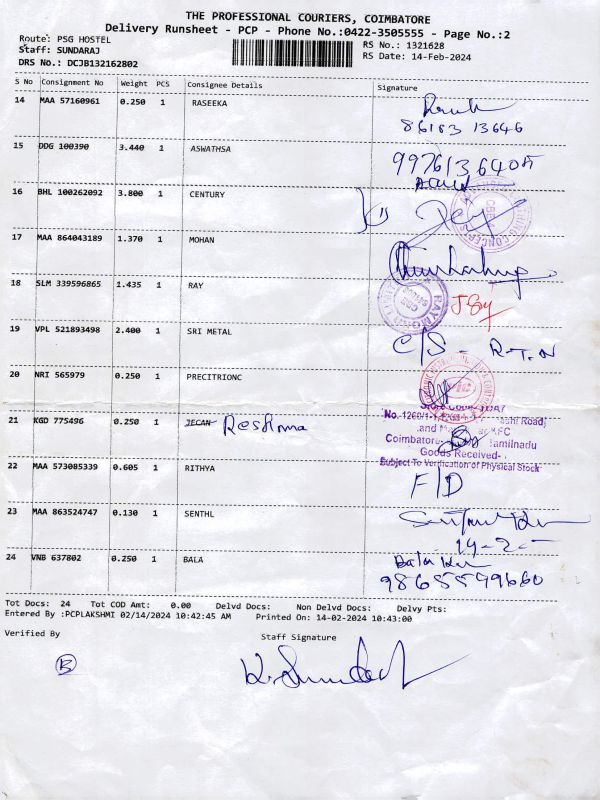 THE PROFESSIONAL COURIERS, COIMBATORE
Delivery Runsheet - PCP - Phone No.:0422-3505555 - Page No.:2
Route: PSG HOSTEL
Staff: SUNDARAJ
DRS No.: DCJB132162802
RS No.: 1321628
RS Date: 14-Feb-2024
S No Consignment No Weight PCS Consignee Details Signature
14 MAA 57160961 0.250 1 RASEEKA
86183 13646
15 DDG 100390 3.440 1 ASWATHSA
16 BHL 100262092 3.800 1 CENTURY
17 MAA 864043189 1.370 1 MOHAN
18 SLM 339596865 1.435 1 RAY
19 VPL 521893498 2.400 1 SRI METAL C/S - R.T.N
20 NRI 565979 0.250 1 PRECITRIONC
21 KGD 775496 0.250 1 JECAN Reshma
Coimbatore- Tamilnadu
Goods Received-
Subject To Verification of Physical Stock
22 MAA 573085339 0.605 1 RITHYA F/D
23 MAA 863524747 0.130 1 SENTHL
24 VNB 637802 0.250 1 BALA
Tot Docs: 24 Tot COD Amt: 0.00 Delvd Docs: Non Delvd Docs: Delvy Pts:
Entered By :PCPLAKSHMI 02/14/2024 10:42:45 AM Printed On: 14-02-2024 10:43:00
Verified By Staff Signature
B K. Sundar